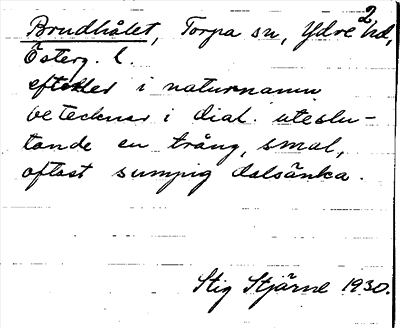 Brudhålet, Torpa sn, Ydre hd, 2
Österg. l.
i naturnamn
betecknar i dial. uteslu-
tande en trång, smal,
oftast sumpig dalsänka.
Stig Stjärne 1930.